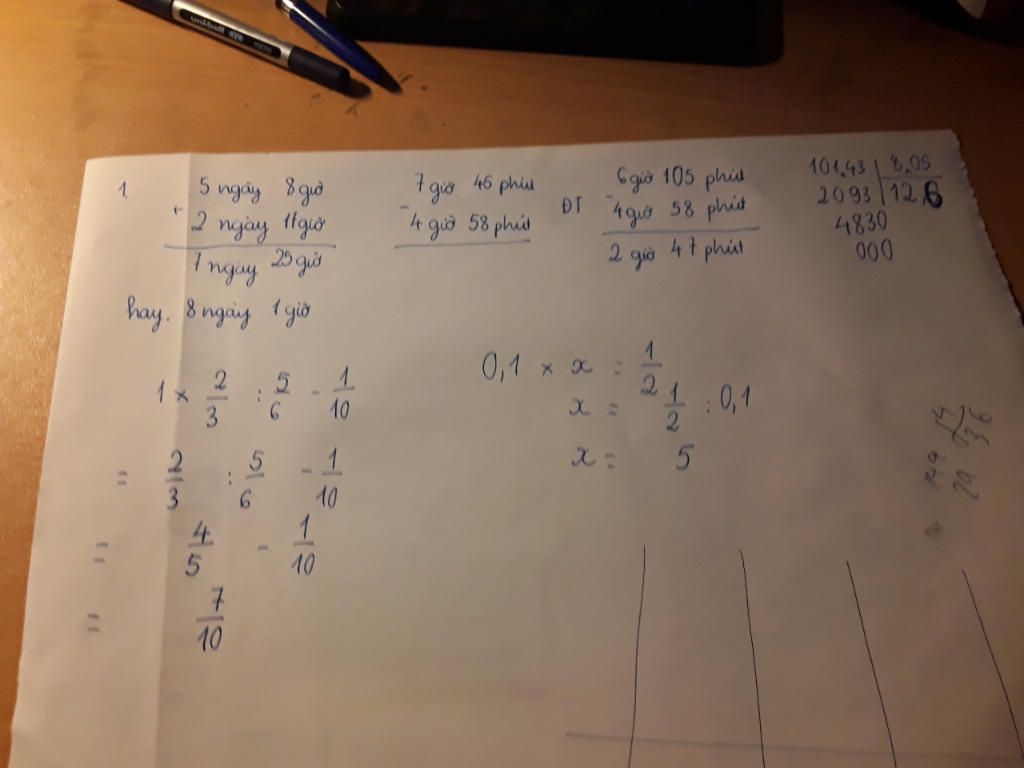 uni-ball eye micro
1. 5 ngày 8 giờ
+ 2 ngày 17 giờ
7 ngày 25 giờ
hay. 8 ngày 1 giờ
7 giờ 45 phút
- 4 giờ 58 phút
ĐT
6 giờ 105 phút
- 4 giờ 58 phút
2 giờ 47 phút
101,43 | 8,05
2093 | 12,6
4830
000
1 × 2/3 : 5/6 - 1/10
= 2/3 : 5/6 - 1/10
= 4/5 - 1/10
= 7/10
0,1 × x = 1/2
x = 1/2 : 0,1
x = 5